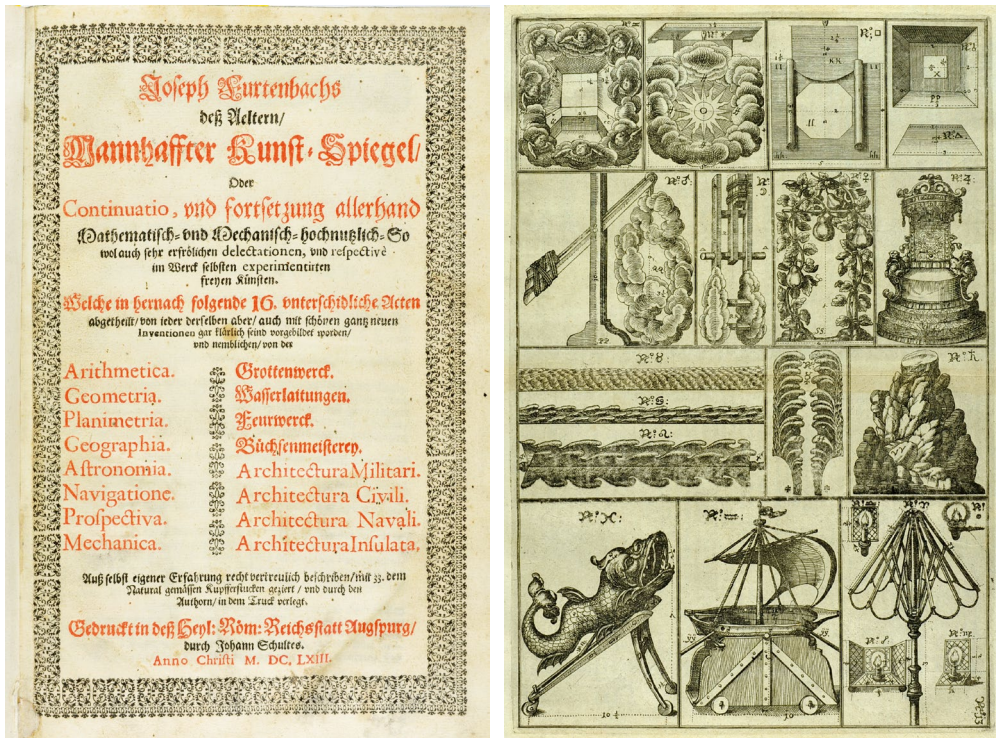 Joseph Furtenbachs
deß Aeltern/
Mannhaffter Kunst-Spiegel/
Oder
Continuatio, vnd fortsetzung allerhand
Mathematisch- vnd Mechanisch- hochnutzlich- So
wol auch sehr erfrölichen delectationen, vnd respectivè
im Werck selbsten experimentirten
freyen Künsten.
Welche in hernach folgende 16. vnterschidliche Acten
abgetheilt/ von ieder derselben aber/ auch mit schönen gantz neuen
Inventionen gar klärlich seind vorgebildet worden/
vnd nemblichen/ von der
Arithmetica.
Geometria.
Planimetria.
Geographia.
Astronomia.
Navigatione.
Prospectiva.
Mechanica.
Grottenwerck.
Wasserlaittungen.
Feurwerck.
Büchsenmeisterey.
Architectura Militari.
Architectura Civili.
Architectura Navali.
Architectura Insulata,
Auß selbst eigener Erfahrung recht vertreulich beschriben/ mit 33. dem
Natural gemässen Kupfferstucken geziert/ vnd durch den
Authorn/ in dem Truck verlegt.
Gedruckt in deß Heyl: Röm: Reichsstatt Augspurg/
durch Johann Schultes.
Anno Christi M. DC. LXIII.